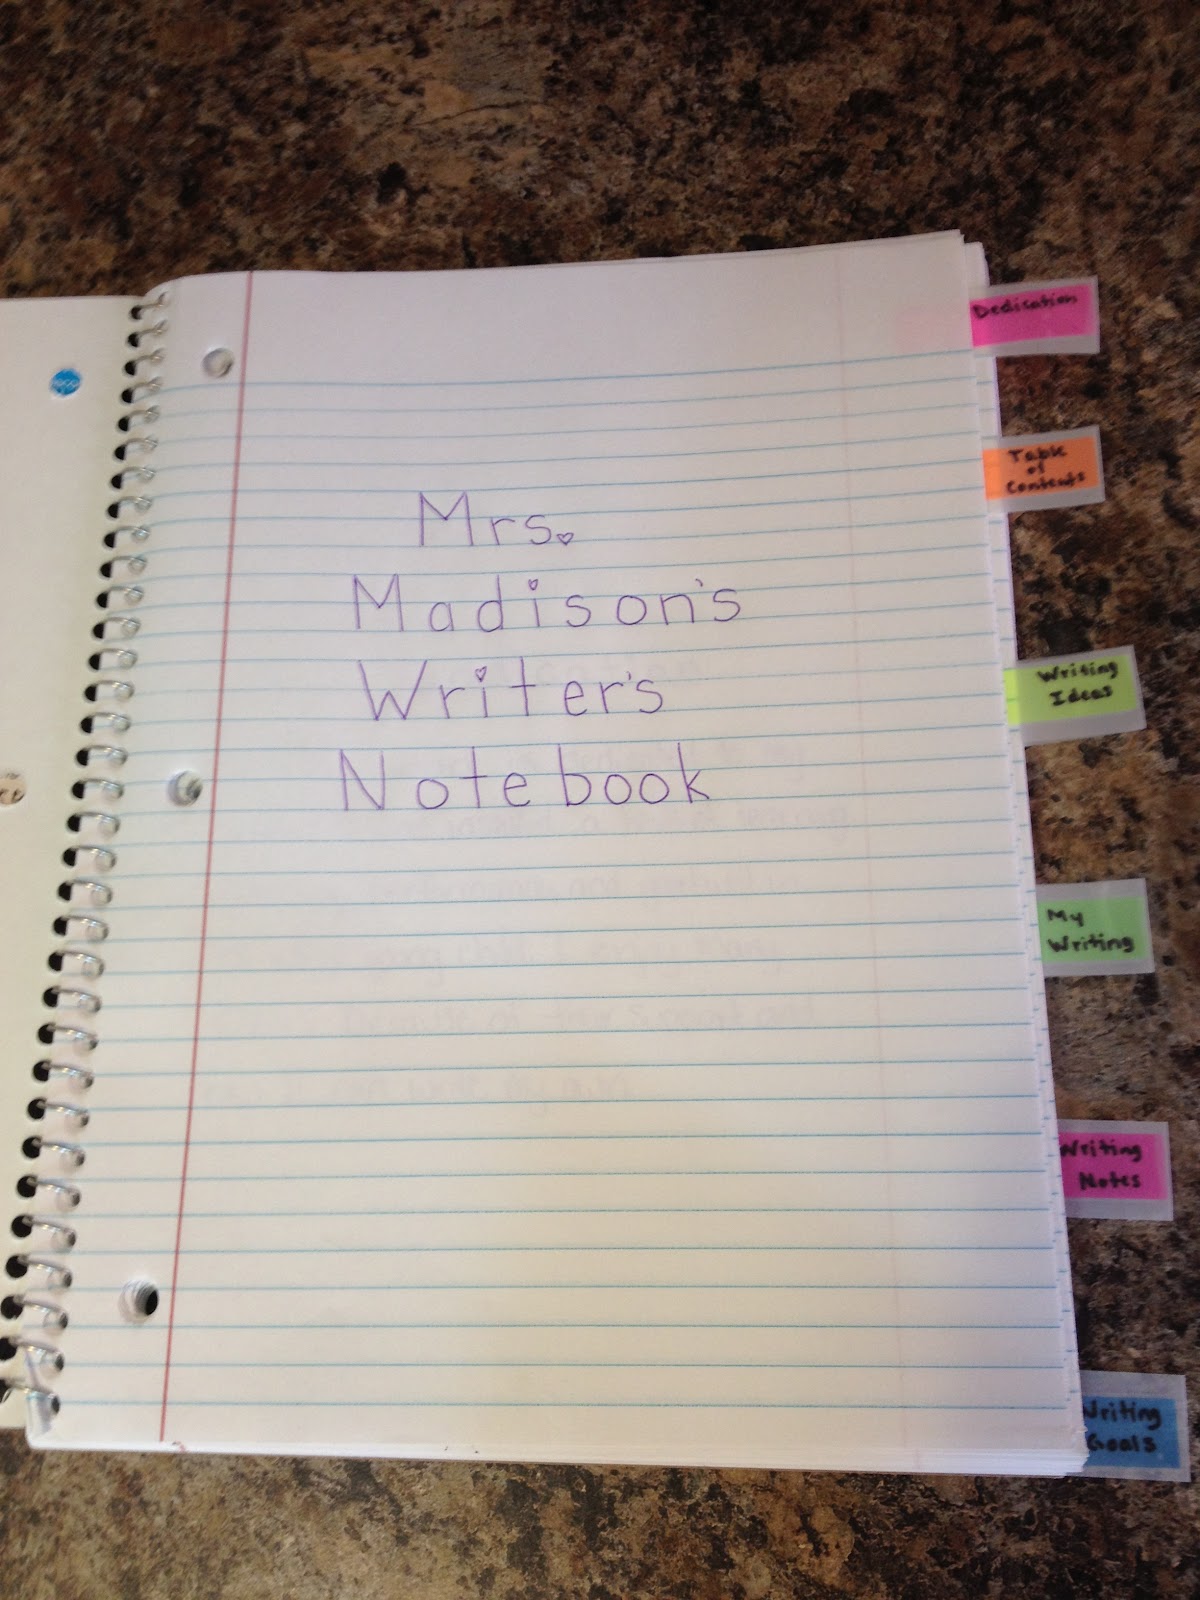 Mrs.
Madison's
Writer's
Notebook
Dedication
Table
of
Contents
Writing
Ideas
My
Writing
Writing
Notes
Writing
Goals